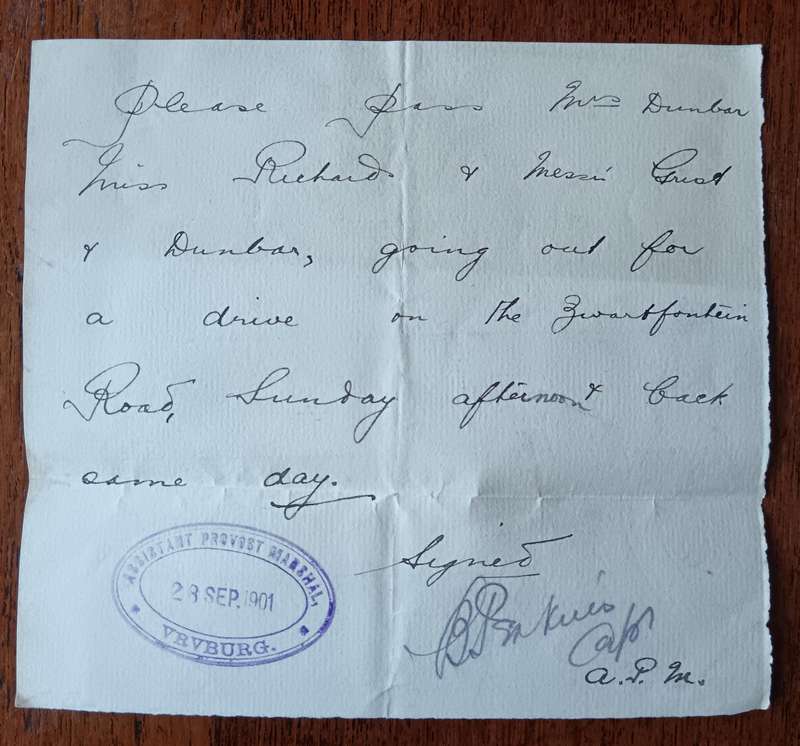 Please pass Mrs Dunbar
Miss Richards & Messrs Grist
& Dunbar, going out for
a drive on the Zwartfontein
Road, Sunday afternoon & back
same day.
Signed
Capt
A.P.M.
ASSISTANT PROVOST MARSHAL,
28 SEP. 1901
VRYBURG.